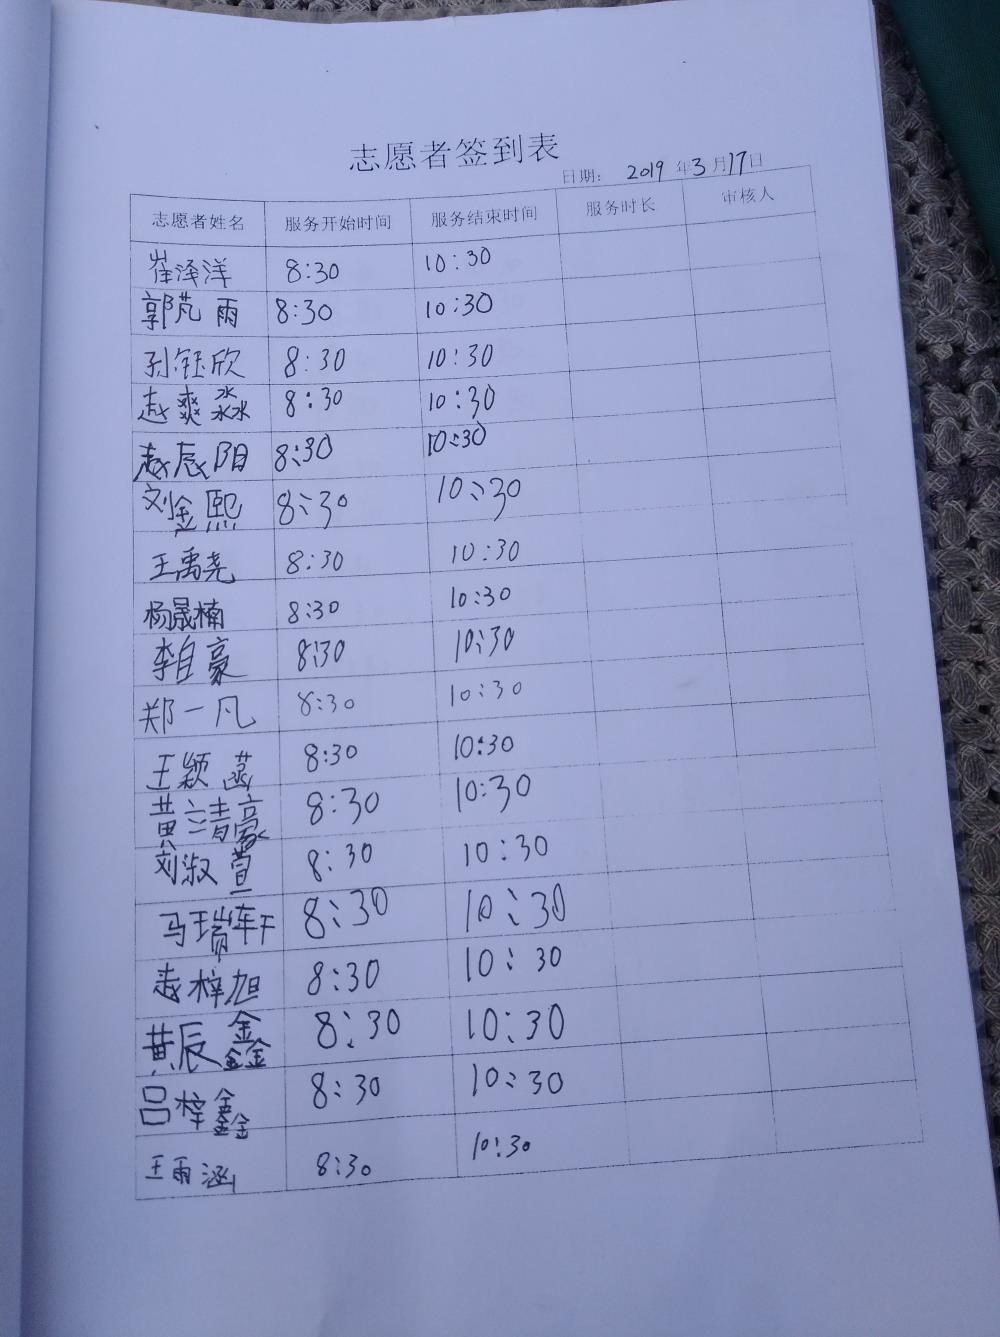 志愿者签到表
日期： 2019 年 3 月 17 日
志愿者姓名 服务开始时间 服务结束时间 服务时长 审核人
崔泽洋 8:30 10:30
郭芃雨 8:30 10:30
孙钰欣 8:30 10:30
赵爽淼 8:30 10:30
赵辰阳 8:30 10:30
刘金熙 8:30 10:30
王禹尧 8:30 10:30
杨晟楠 8:30 10:30
李自豪 8:30 10:30
郑一凡 8:30 10:30
王颖菡 8:30 10:30
黄清豪 8:30 10:30
刘淑萱 8:30 10:30
马瑞轩 8:30 10:30
赵梓旭 8:30 10:30
黄辰鑫 8:30 10:30
吕梓鑫 8:30 10:30
王雨涵 8:30 10:30